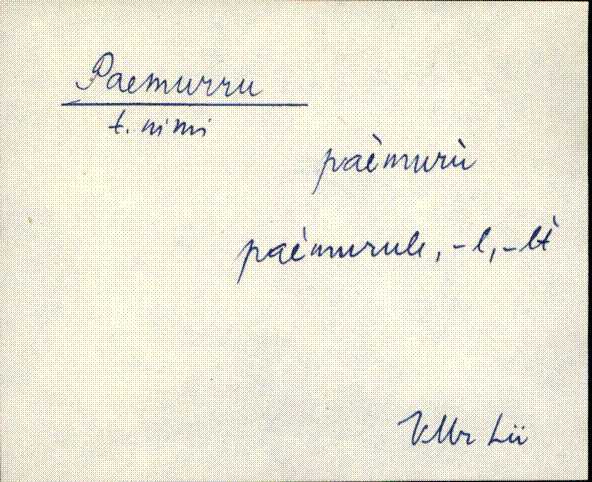 Paemurru
t. nimi
paèmurù
paèmurule, -l, -lt
VMr Lü